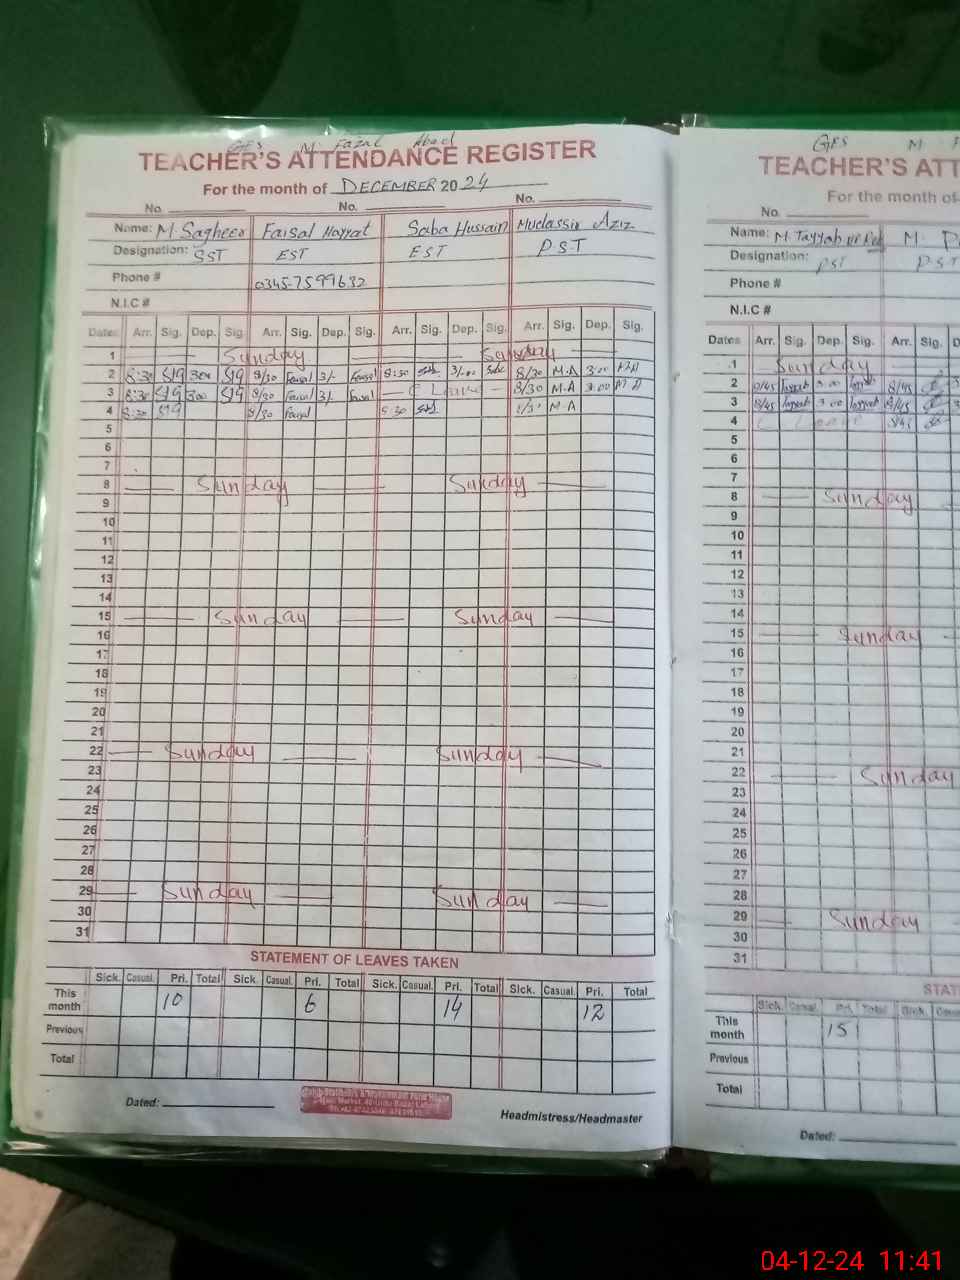 GES M. Fazal Abad
TEACHER'S ATTENDANCE REGISTER
For the month of DECEMBER 2024
No. No. No.
Name: M. Sagheer Faisal Hayyat Saba Hussain Mudassir Aziz
Designation: SST EST EST PST
Phone # 0345-7599632
N.I.C #
Dates Arr. Sig. Dep. Sig. Arr. Sig. Dep. Sig. Arr. Sig. Dep. Sig. Arr. Sig. Dep. Sig.
1 Sunday Sunday
2 8:30 3:00 8/30 Faisal 3/- Faisal 8:30 3/-00 8/30 M.A 3:00 M.A
3 8:30 3:00 8/30 Faisal 3/- Faisal C Leave 8/30 M.A 3:00 M.A
4 8:30 8/30 Faisal 8:30 8/30 M.A
5
6
7
8 Sunday Sunday
9
10
11
12
13
14
15 Sunday Sunday
16
17
18
19
20
21
22 Sunday Sunday
23
24
25
26
27
28
29 Sunday Sunday
30
31
STATEMENT OF LEAVES TAKEN
Sick. Casual. Pri. Total Sick. Casual. Pri. Total Sick. Casual. Pri. Total Sick. Casual. Pri. Total
This month 10 6 14 12
Previous
Total
Dated:
Headmistress/Headmaster
GES M
TEACHER'S ATT
For the month of
No.
Name: M. Tayyab M.
Designation: PST PST
Phone #
N.I.C #
Dates Arr. Sig. Dep. Sig. Arr. Sig.
1 Sunday
2 8/45 3:00 8/45
3 8/45 3:00 8/45
4 C Leave 8/45
5
6
7
8 Sunday
9
10
11
12
13
14
15 Sunday
16
17
18
19
20
21
22 Sunday
23
24
25
26
27
28
29 Sunday
30
31
STAT
Sick. Casual. Pri. Total Sick.
This month 15
Previous
Total
Dated:
04-12-24 11:41